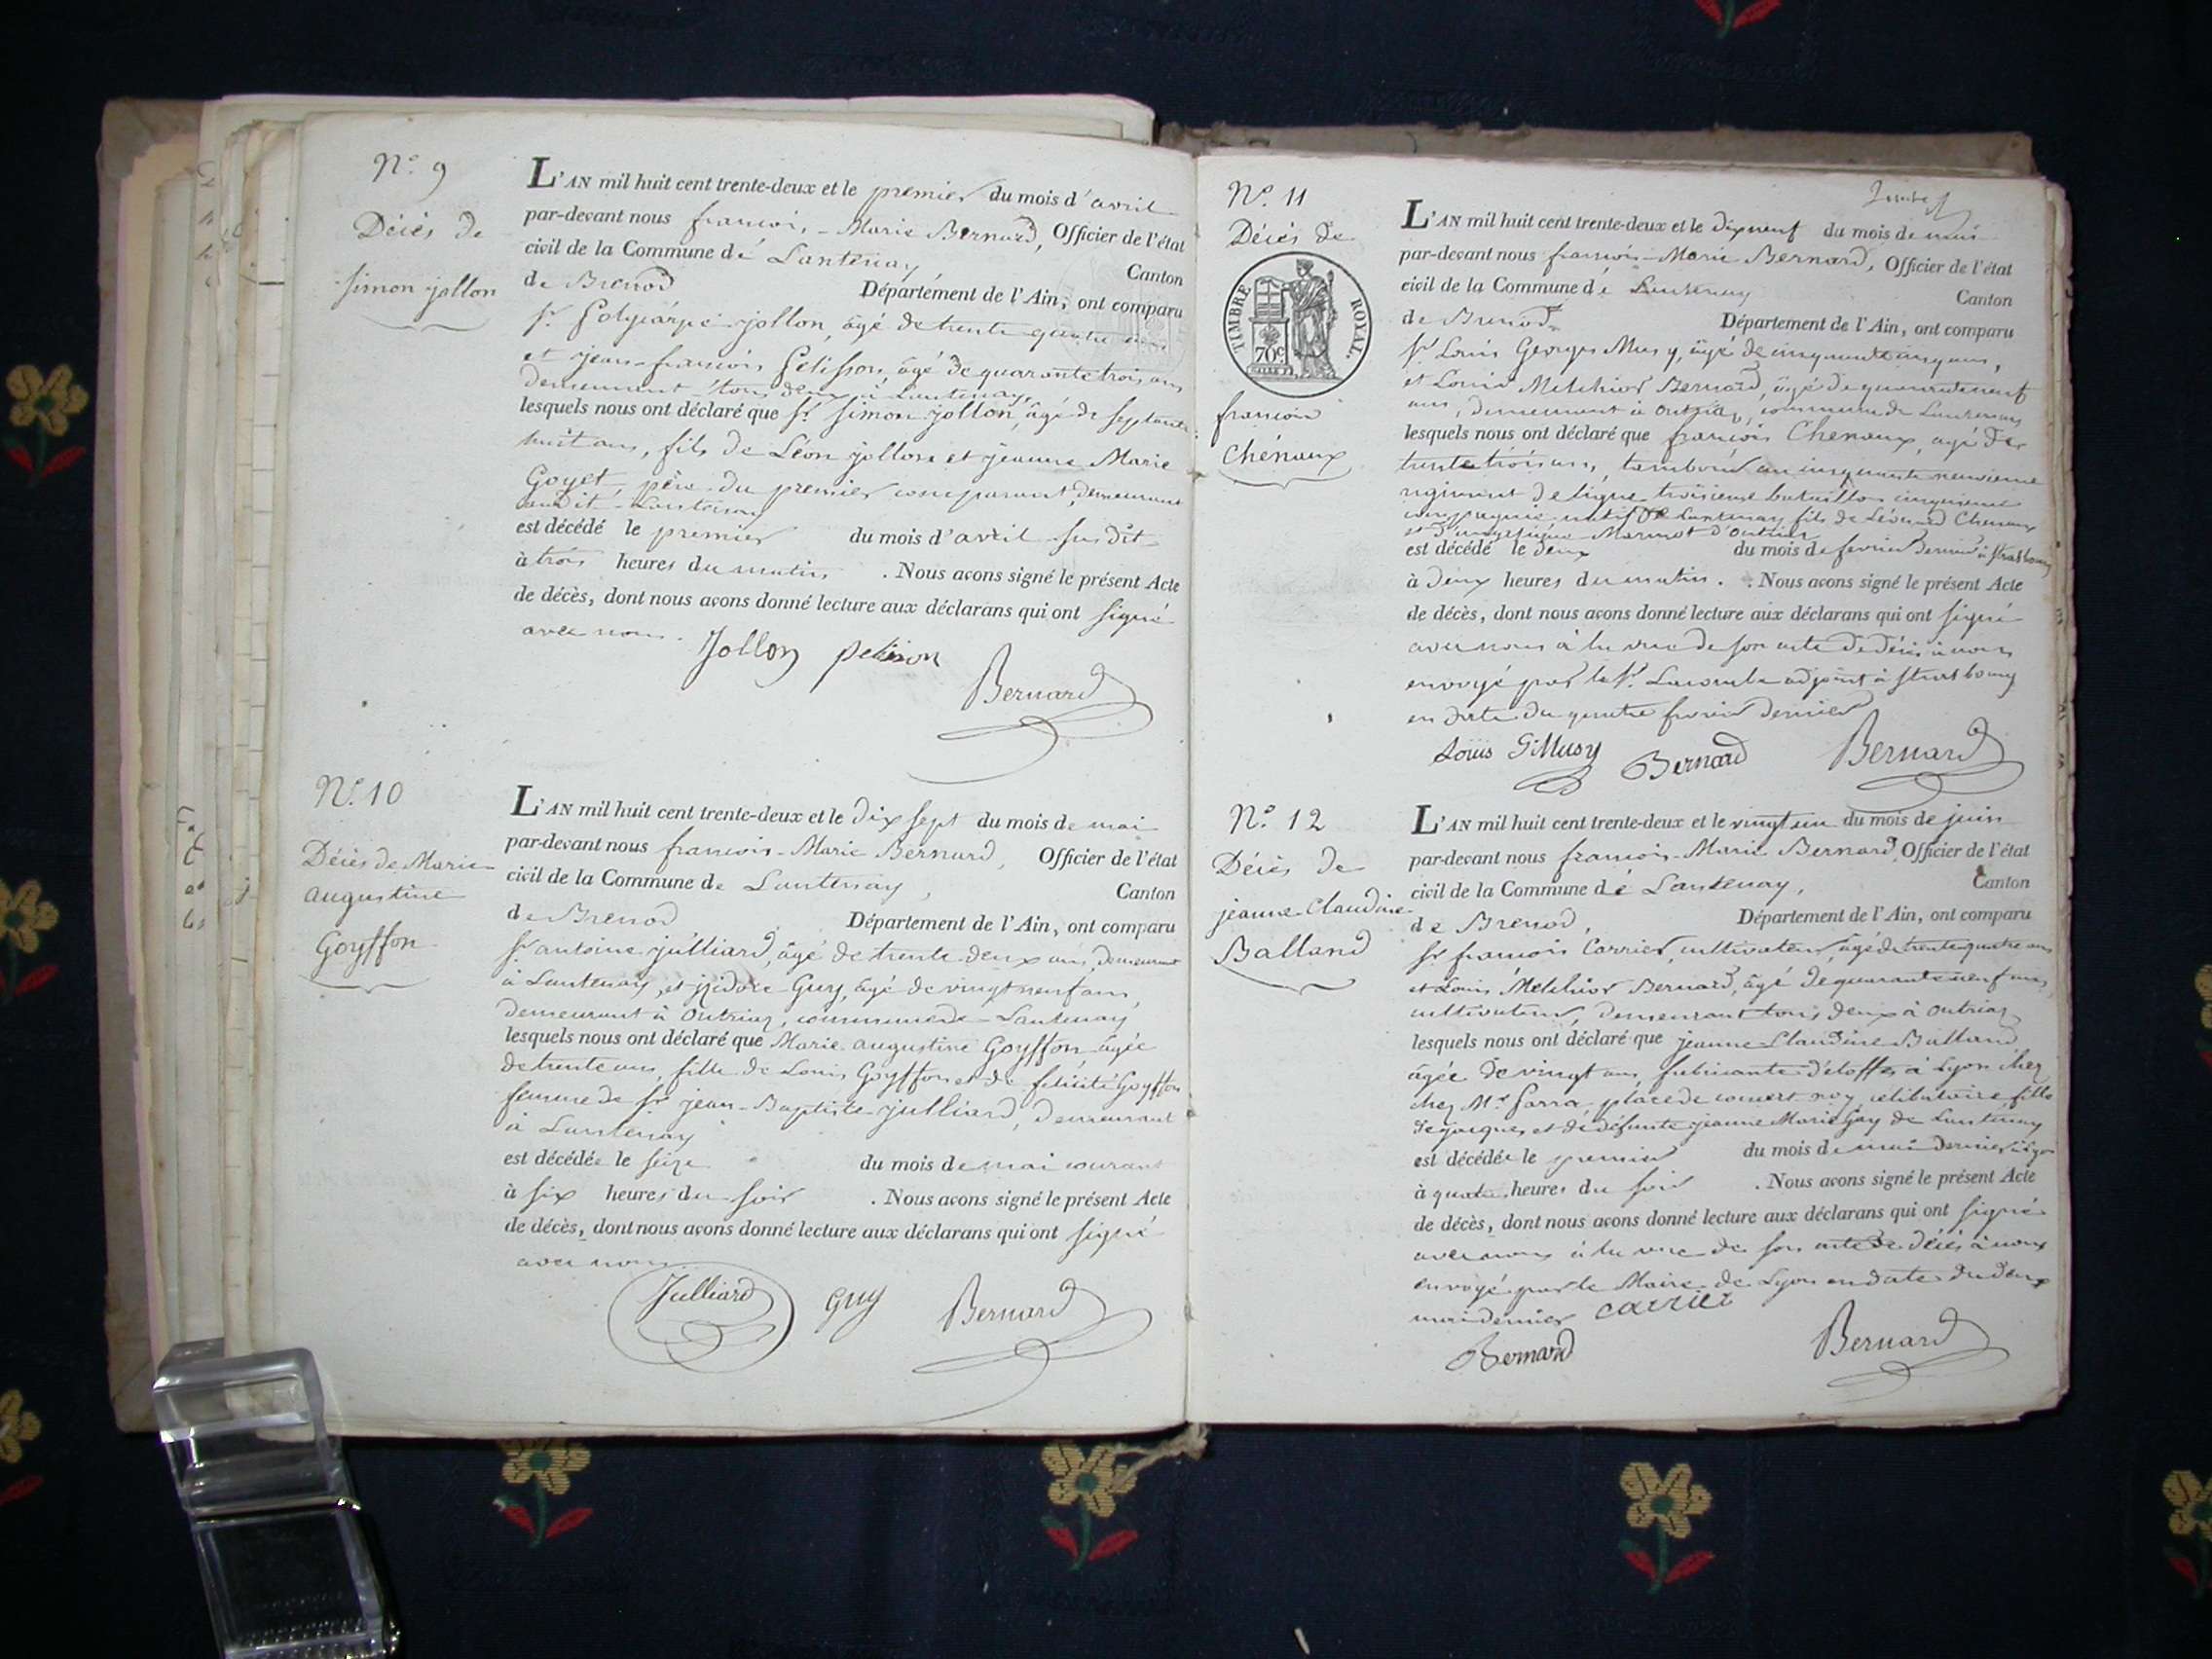 N.° 9
Décès de
simon jollon
L'AN mil huit cent trente-deux et le premier du mois d'avril
par-devant nous francois-Marie Bernard, Officier de l'état
civil de la Commune de Lantenay Canton
de Brenod Département de l'Ain, ont comparu
Sr. Polycarpe jollon, âgé de trente quatre ans
et jean-francois Pelisson, âgé de quarante trois ans
demeurant tous deux à Lantenay,
lesquels nous ont déclaré que Sr. simon jollon, âgé de septante
huit ans, fils de Léon jollon et jeanne Marie
Goyet, père du premier comparant, demeurant
audit Lantenay
est décédé le premier du mois d'avril susdit
à trois heures du matin. Nous avons signé le présent Acte
de décès, dont nous avons donné lecture aux déclarans qui ont signé
avec nous.
Jollon pelisson
Bernard
N.° 10
Décès de Marie
augustine
Goyffon
L'AN mil huit cent trente-deux et le dix sept du mois de mai
par-devant nous francois-Marie Bernard, Officier de l'état
civil de la Commune de Lantenay, Canton
de Brenod Département de l'Ain, ont comparu
Sr. antoine julliard, âgé de trente deux ans, demeurant
à Lantenay, et jzidore Guy, âgé de vingt neuf ans,
demeurant à Outriaz, commune de Lantenay
lesquels nous ont déclaré que Marie augustine Goyffon âgée
de trente ans, fille de Louis Goyffon et de felicité Goyffon
femme de Sr. jean-Baptiste julliard, demeurant
à Lantenay
est décédée le seize du mois de mai courant
à six heures du soir. Nous avons signé le présent Acte
de décès, dont nous avons donné lecture aux déclarans qui ont signé
avec nous
Julliard Guy Bernard
N.° 11
Décès de
TIMBRE ROYAL.
70c
francois
Chénaux
L'AN mil huit cent trente-deux et le dix neuf du mois de mai
par-devant nous francois-Marie Bernard, Officier de l'état
civil de la Commune de Lantenay Canton
de Brenod Département de l'Ain, ont comparu
Sr. Louis Georges Musy, âgé de cinquante cinq ans,
et Louis Melchior Bernard, âgé de quarante neuf
ans, demeurant à Outriaz, commune de Lantenay
lesquels nous ont déclaré que francois Chenaux, agé de
trente trois ans, tambour au cinquante neuvieme
régiment de ligne troisieme bataillon cinquieme
compagnie natif de Lantenay fils de Léonard Chenaux
et d'angelique Marmot d'Outriaz
est décédé le deux du mois de fevrier dernier à Strasbourg
à deux heures du matin. Nous avons signé le présent Acte
de décès, dont nous avons donné lecture aux déclarans qui ont signé
avec nous à la vue de son acte de décès à nous
envoyé par le Sr. Lacombe adjoint à Strasbourg
en date du quatre fevrier dernier
Louis G Musy Bernard Bernard
N.° 12
Décès de
jeanne-Claudine
Balland
L'AN mil huit cent trente-deux et le vingt un du mois de juin
par-devant nous francois-Marie Bernard, Officier de l'état
civil de la Commune de Lantenay, Canton
de Brenod, Département de l'Ain, ont comparu
Sr francois Carrier, cultivateur, âgé de trente quatre ans
et Louis Melchior Bernard, âgé de quarante neuf ans,
cultivateur, demeurant tous deux à Outriaz
lesquels nous ont déclaré que jeanne Claudine Balland
âgée de vingt ans, fabricante d'étoffes à Lyon chez
chez Mr. Parra place de couvert noy, célibataire fille
de jacques et de défunte jeanne Marie Gay de Lantenay
est décédée le premier du mois de mai dernier à Lyon
à quatre heures du soir. Nous avons signé le présent Acte
de décès, dont nous avons donné lecture aux déclarans qui ont signé
avec nous à la vue de son acte de décès à nous
envoyé par le Maire de Lyon en date du deux
mai dernier carrier
Bernard Bernard